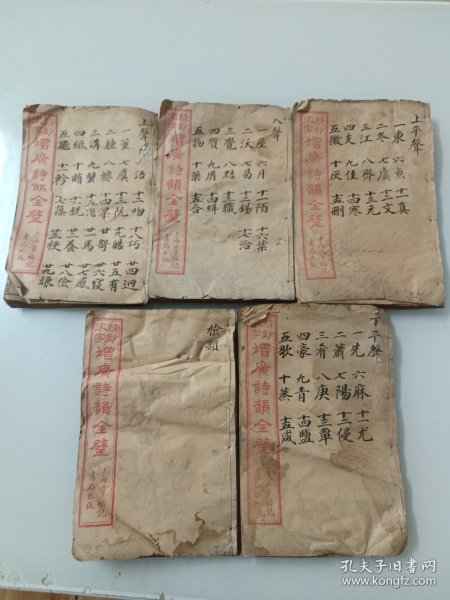 上聲
六語 十二吻 十八巧 廿四迥
一董 七麌 十三阮 十九皓 廿五有
二腫 八薺 十四旱 廿哿 廿六寢
三講 九蟹 十五潸 廿一馬 廿七感
四紙 十賄 十六銑 廿二養 廿八儉
五尾 十一軫 十七篠 廿三梗 廿九豏
增廣詩韻全璧
入聲
一屋 六月 十一陌 十六葉
二沃 七曷 十二錫 十七洽
三覺 八黠 十三職
四質 九屑 十四緝
五物 十藥 十五合
增廣詩韻全璧
上平聲
一東 六魚 十一真
二冬 七虞 十二文
三江 八齊 十三元
四支 九佳 十四寒
五微 十灰 十五刪
增廣詩韻全璧
檢韻
增廣詩韻全璧
上海章福記
書局出版
下平聲
一先 六麻 十一尤
二蕭 七陽 十二侵
三肴 八庚 十三覃
四豪 九青 十四鹽
五歌 十蒸 十五咸
增廣詩韻全璧
孔夫子旧书网
www.kongfz.com